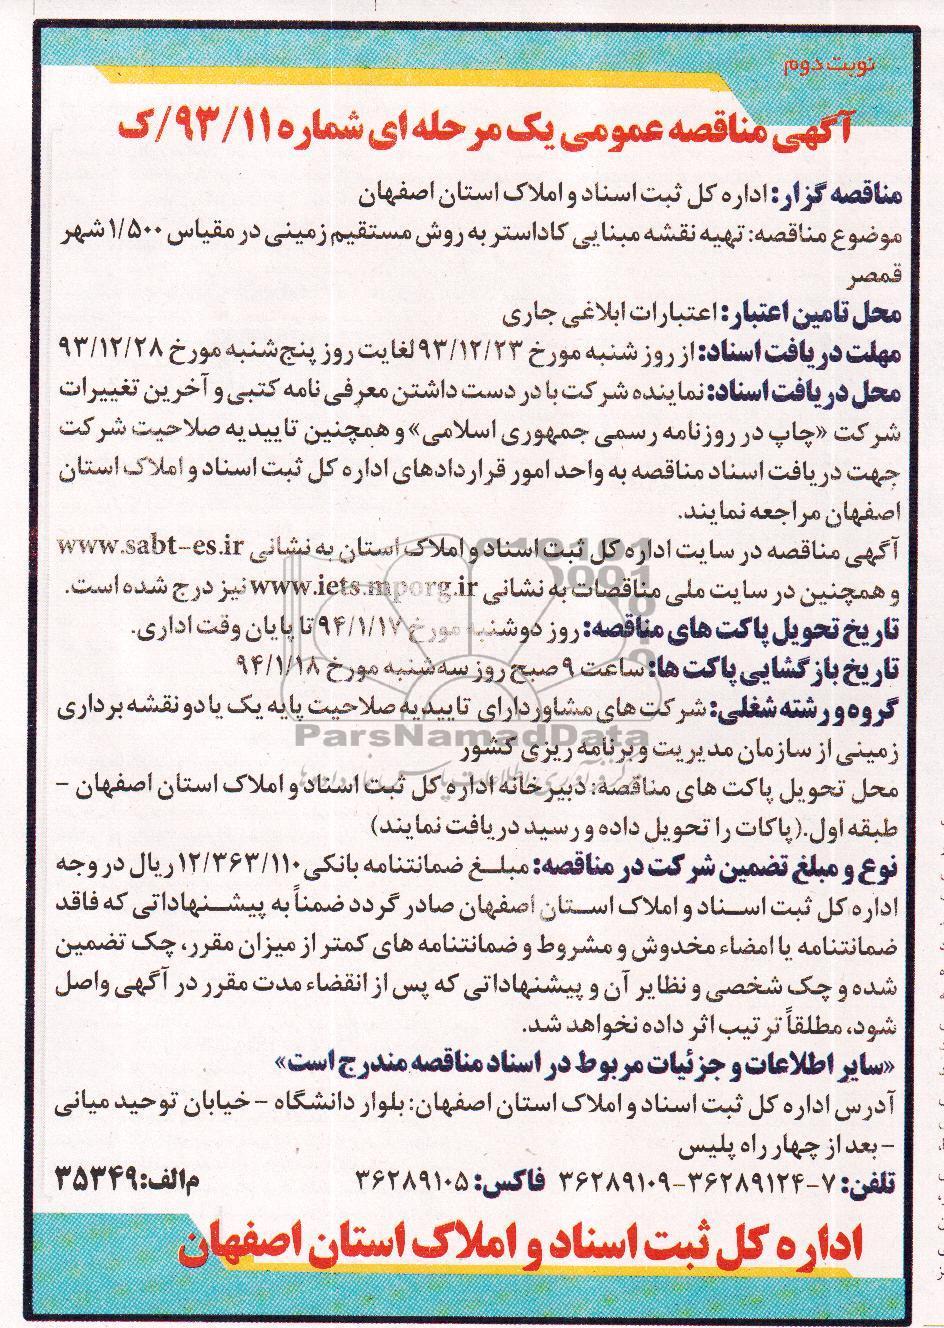 نوبت دوم
آگهی مناقصه عمومی یک مرحله ای شماره ۹۳/۱۱/ک
مناقصه گزار: اداره کل ثبت اسناد و املاک استان اصفهان
موضوع مناقصه: تهیه نقشه مبنایی کاداستر به روش مستقیم زمینی در مقیاس ۱/۵۰۰ شهر
قمصر
محل تامین اعتبار: اعتبارات ابلاغی جاری
مهلت دریافت اسناد: از روز شنبه مورخ ۹۳/۱۲/۲۳ لغایت روز پنج شنبه مورخ ۹۳/۱۲/۲۸
محل دریافت اسناد: نماینده شرکت با در دست داشتن معرفی نامه کتبی و آخرین تغییرات
شرکت «چاپ در روزنامه رسمی جمهوری اسلامی» و همچنین تاییدیه صلاحیت شرکت
جهت دریافت اسناد مناقصه به واحد امور قراردادهای اداره کل ثبت اسناد و املاک استان
اصفهان مراجعه نمایند.
آگهی مناقصه در سایت اداره کل ثبت اسناد و املاک استان به نشانی www.sabt-es.ir
و همچنین در سایت ملی مناقصات به نشانی www.iets.mporg.ir نیز درج شده است.
تاریخ تحویل پاکت های مناقصه: روز دوشنبه مورخ ۹۴/۱/۱۷ تا پایان وقت اداری.
تاریخ بازگشایی پاکت ها: ساعت ۹ صبح روز سه شنبه مورخ ۹۴/۱/۱۸
گروه و رشته شغلی: شرکت های مشاور دارای تاییدیه صلاحیت پایه یک یا دو نقشه برداری
ParsNamadData
زمینی از سازمان مدیریت و برنامه ریزی کشور
محل تحویل پاکت های مناقصه: دبیرخانه اداره کل ثبت اسناد و املاک استان اصفهان -
طبقه اول.(پاکات را تحویل داده و رسید دریافت نمایند)
نوع و مبلغ تضمین شرکت در مناقصه: مبلغ ضمانتنامه بانکی ۱۲/۳۶۳/۱۱۰ ریال در وجه
اداره کل ثبت اسناد و املاک استان اصفهان صادر گردد ضمناً به پیشنهاداتی که فاقد
ضمانتنامه یا امضاء مخدوش و مشروط و ضمانتنامه های کمتر از میزان مقرر، چک تضمین
شده و چک شخصی و نظایر آن و پیشنهاداتی که پس از انقضاء مدت مقرر در آگهی واصل
شود، مطلقاً ترتیب اثر داده نخواهد شد.
«سایر اطلاعات و جزئیات مربوط در اسناد مناقصه مندرج است»
آدرس اداره کل ثبت اسناد و املاک استان اصفهان: بلوار دانشگاه - خیابان توحید میانی
- بعد از چهار راه پلیس
تلفن: ۷-۳۶۲۸۹۱۲۴-۳۶۲۸۹۱۰۹ فاکس: ۳۶۲۸۹۱۰۵ م الف: ۳۵۳۴۹
اداره کل ثبت اسناد و املاک استان اصفهان